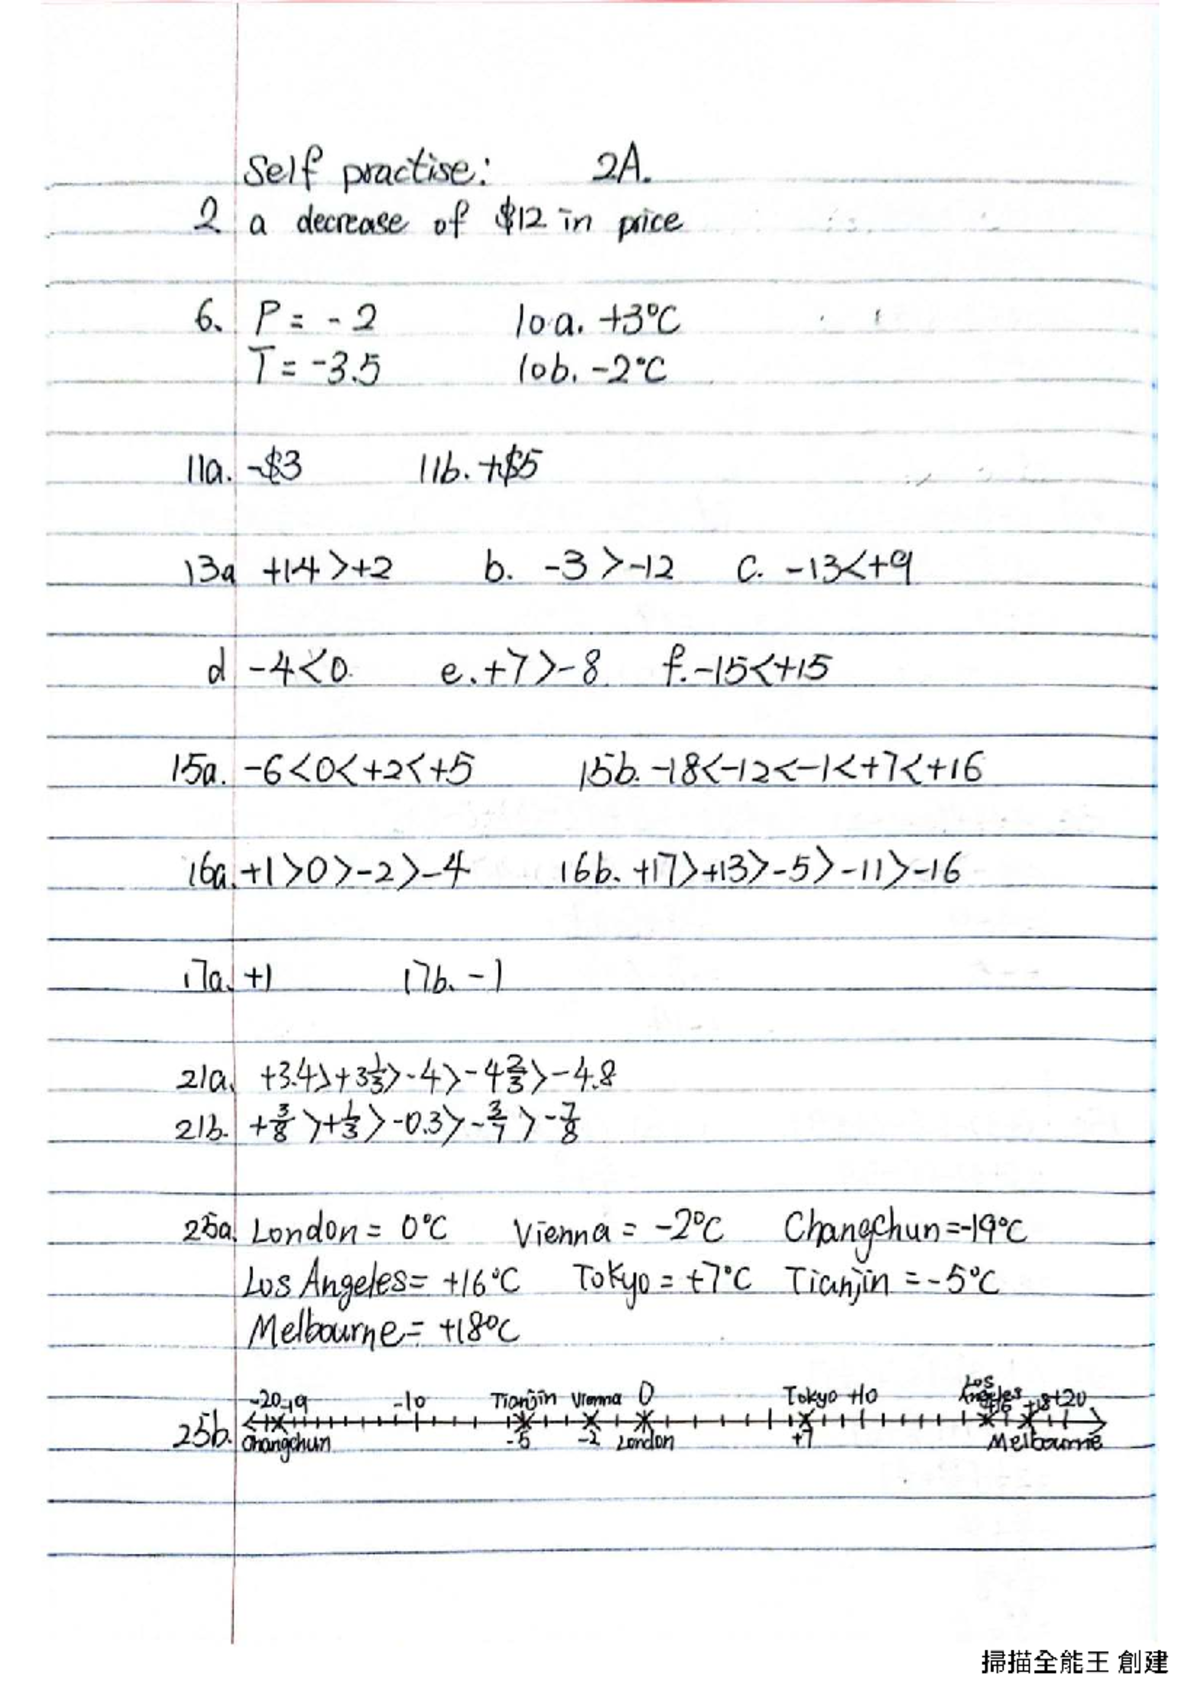 Self practise: 2A.
2 a decrease of $12 in price
6. P = -2 10a. +3°C
T = -3.5 10b. -2°C
11a. -$3 11b. +$5
13a +14 > +2 b. -3 > -12 c. -13 < +9
d -4 < 0 e. +7 > -8 f. -15 < +15
15a. -6 < 0 < +2 < +5 15b. -18 < -12 < -1 < +7 < +16
16a. +1 > 0 > -2 > -4 16b. +17 > +13 > -5 > -11 > -16
17a. +1 17b. -1
21a. +3.4 > +3 1/3 > -4 > -4 2/3 > -4.8
21b. +3/8 > +1/3 > -0.3 > -3/7 > -7/8
25a. London = 0°C Vienna = -2°C Changchun = -19°C
Los Angeles = +16°C Tokyo = +7°C Tianjin = -5°C
Melbourne = +18°C
-20 -19 -10 Tianjin Vienna 0 Tokyo +10 Los Angeles +16 +18 +20
25b. Changchun -5 -2 London +7 Melbourne
掃描全能王 創建